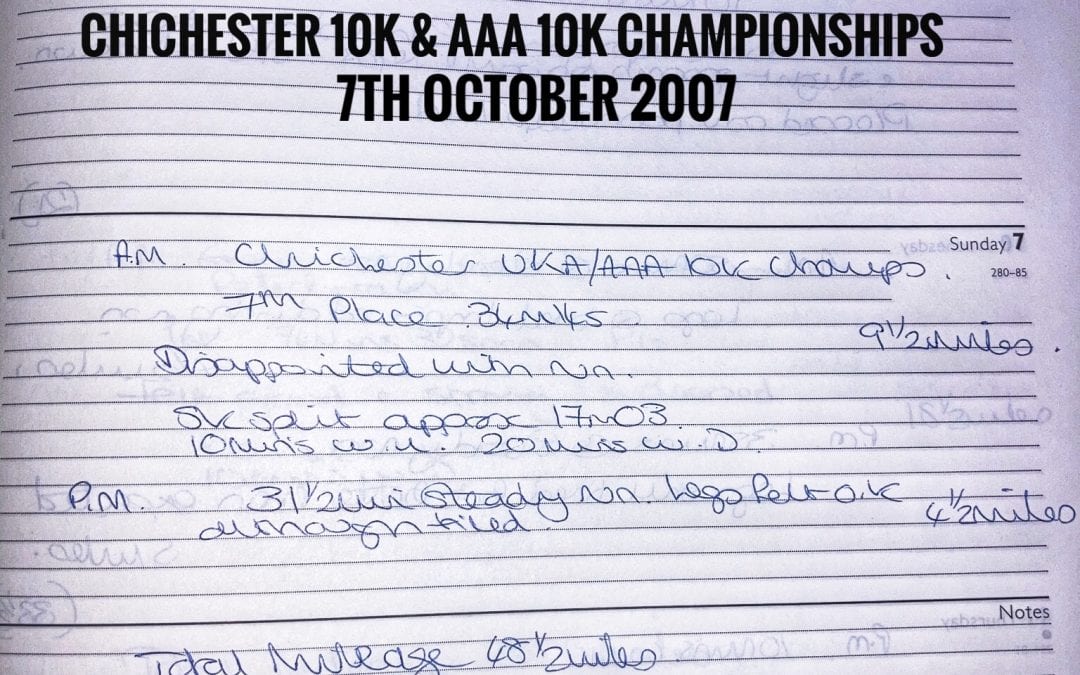 CHICHESTER 10K & AAA 10K CHAMPIONSHIPS
7TH OCTOBER 2007
Sunday 7
280–85
A.M. Chichester UKA/AAA 10K Champs.
7th Place 34m45
9½miles.
Disappointed with run.
5K split approx 17m03.
10mins w.u. 20mins w.D.
P.M. 31½min Steady run. Legs felt O.K
although tired.
4½miles
Notes
Total Mileage 48½miles.